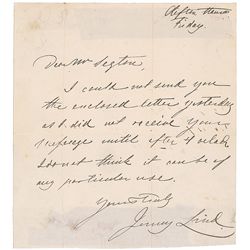 Clifton Hanson
Friday.
Dear Mr Segton
I could not send you
the enclosed letter yesterday
as I did not receive your
message until after 4 o'clock
I do not think it can be of
any particular use.
Yours truly
Jenny Lind.